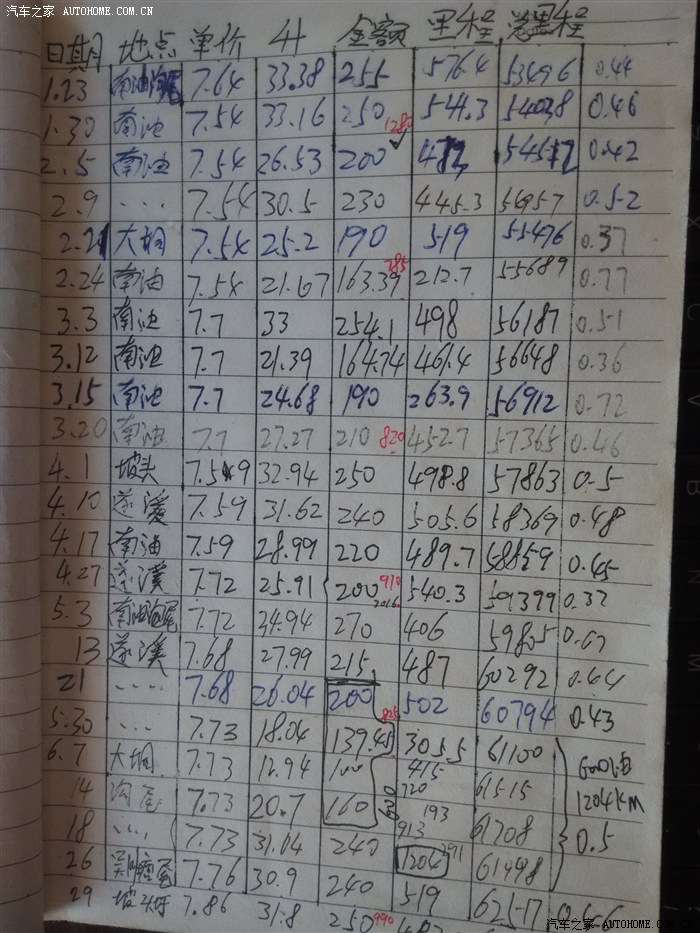 汽车之家 AUTOHOME.COM.CN
日期 地点 单价 升 金额 里程 总里程
1.23 南油 7.64 33.38 255 576.4 53496 0.44
1.30 南油 7.54 33.16 250 541.3 54038 0.46
1280
2.5 南油 7.54 26.53 200 0.42
2.9 .... 7.54 30.5 230 445.3 0.52
2.21 大桐 7.54 25.2 190 519 55476 0.37
785
2.24 南油 7.54 21.67 163.39 212.7 55689 0.77
3.3 南油 7.7 33 254.1 498 56187 0.51
3.12 南油 7.7 21.39 164.74 461.4 56648 0.36
3.15 南油 7.7 24.68 190 263.9 56912 0.72
3.20 南油 7.7 27.27 210 820 452.7 57365 0.46
4.1 坡头 7.59 32.94 250 498.8 57863 0.5
4.10 遂溪 7.59 31.62 240 505.6 58369 0.48
4.17 南油 7.59 28.99 220 489.7 58859 0.45
4.27 遂溪 7.72 25.91 200 910 540.3 59399 0.37
2016.
5.3 南油 7.72 34.94 270 406 59805 0.67
13 遂溪 7.68 27.99 215. 487 60292 0.44
21 .... 7.68 26.04 200 502 60794 0.43
825
5.30 ... 7.73 18.04 139.45 305.5 61100
6.7 大桐 7.73 12.94 100 415 61515
720
14 沟尾 7.73 20.7 160 193 61708
1204KM
913
18 .... 7.73 31.04 240 1204 291 0.5
26 7.76 30.9 240 519
29 坡头 7.86 31.8 250 990 62517
汽车之家 WWW.AUTOHOME.COM.CN